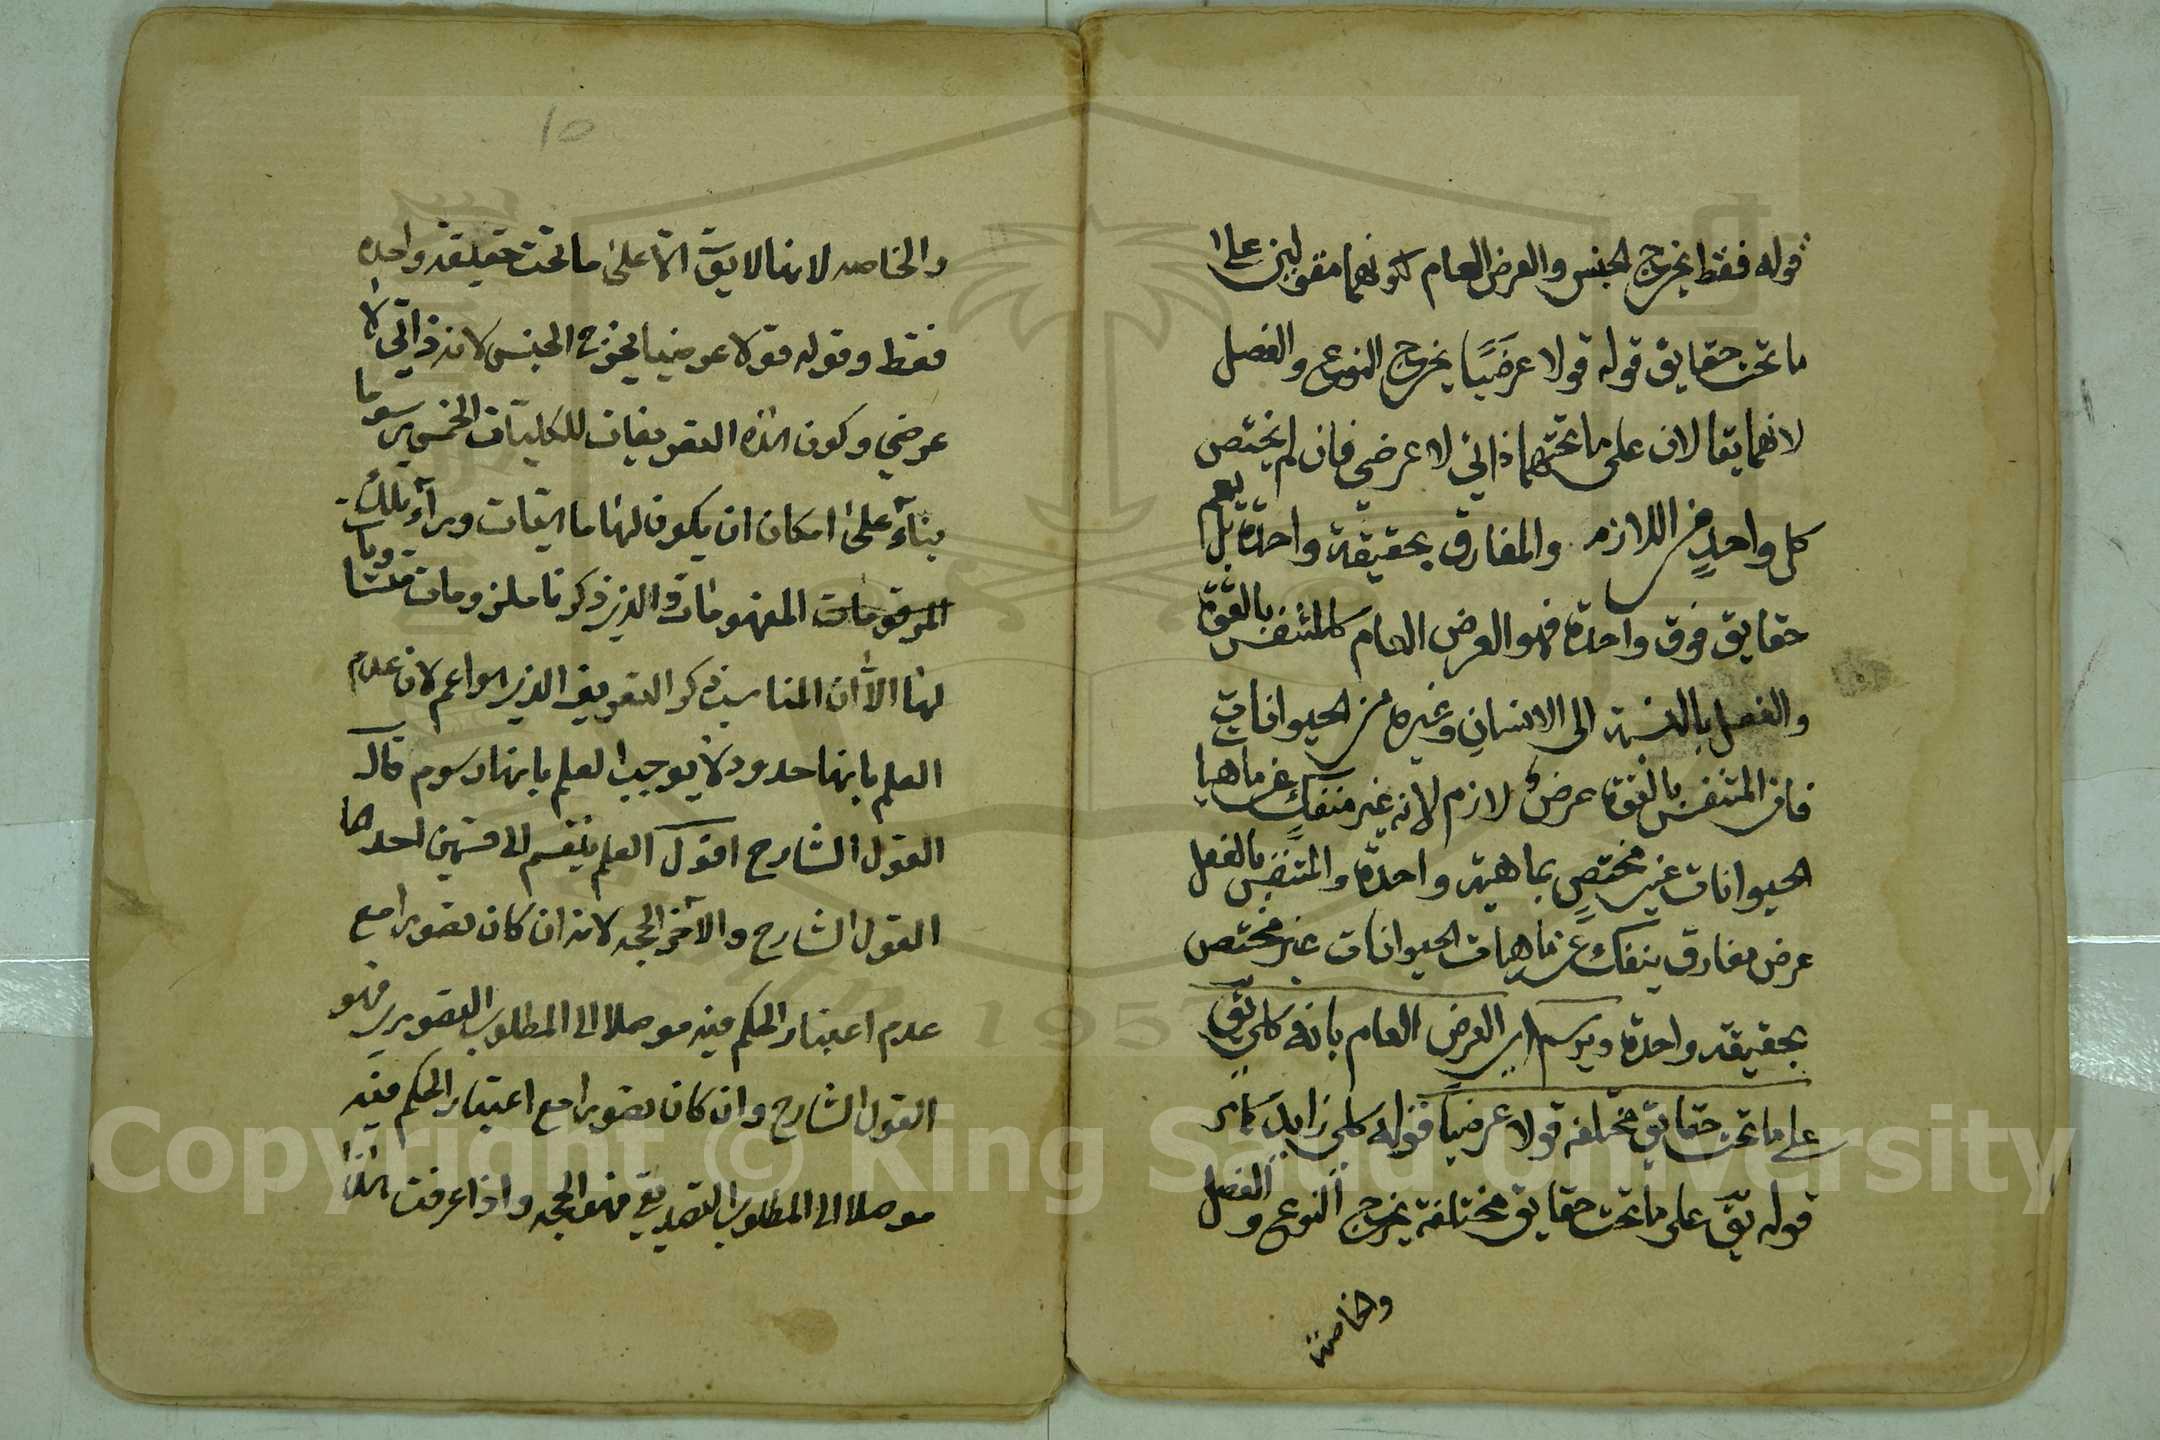 قوله فقط يخرج الجنس والعرض العام لكونهما مقولين على
ما تحت حقايق قوله قولا عرضيًا يخرج النوع والفصل
لانهما يقالان على ما تحتهما ذاتي لا عرضي فان لم يختص
كل واحدٍ من اللازم والمفارق بحقيقة واحدة بل يعم
حقايق فوق واحدة فهو العرض العام كالمتنفس بالقوة
والفعل بالنسبة الى الانسان وغيره من الحيوانات
فان المتنفس بالقوة عرض لازم لانه غير منفك عن ماهيا
الحيوانات غير مختص بماهية واحدة والمتنفس بالفعل
عرض مفارق ينفك عن ماهيات الحيوانات غير مختص
بحقيقة واحدة ويرسم اي العرض العام بانه كلي يق
على ما تحت حقايق مختلفة قولا عرضياً قوله كلي زايد كامر
قوله يق على ما تحت حقايق مختلفة يخرج النوع والفصل
وخاصة
١٥
والخاصه لانها لا يق الا على ما تحت حقيقة واحدة
فقط وقوله قولا عرضيا يخرج الجنس لانه ذاتي لا
عرضي وكون هذه التعريفات للكليات الخمس رسوما
بناءً على امكان ان يكون لها ماهيات ورآء تلك
المرقومات المفهومات الذين ذكرنا ملزومات متساويات
لها الا ان المناسب ذكر التعريف الذي هو اعم لان عدم
العلم بانها حدود لا يوجب العلم بانها رسوم قال
القول الشارح اقول العلم ينقسم الى قسمين احدها
القول الشارح والآخر الحجه لانه ان كان تصورا مع
عدم اعتبار الحكم فيه موصلا الى المطلوب التصوري فهو
القول الشارح وان كان تصورا مع اعتبار الحكم فيه
موصلا الى المطلوب التصديقي فهو الحجه واذا عرفت هذا
Copyright © King Saud University
1957